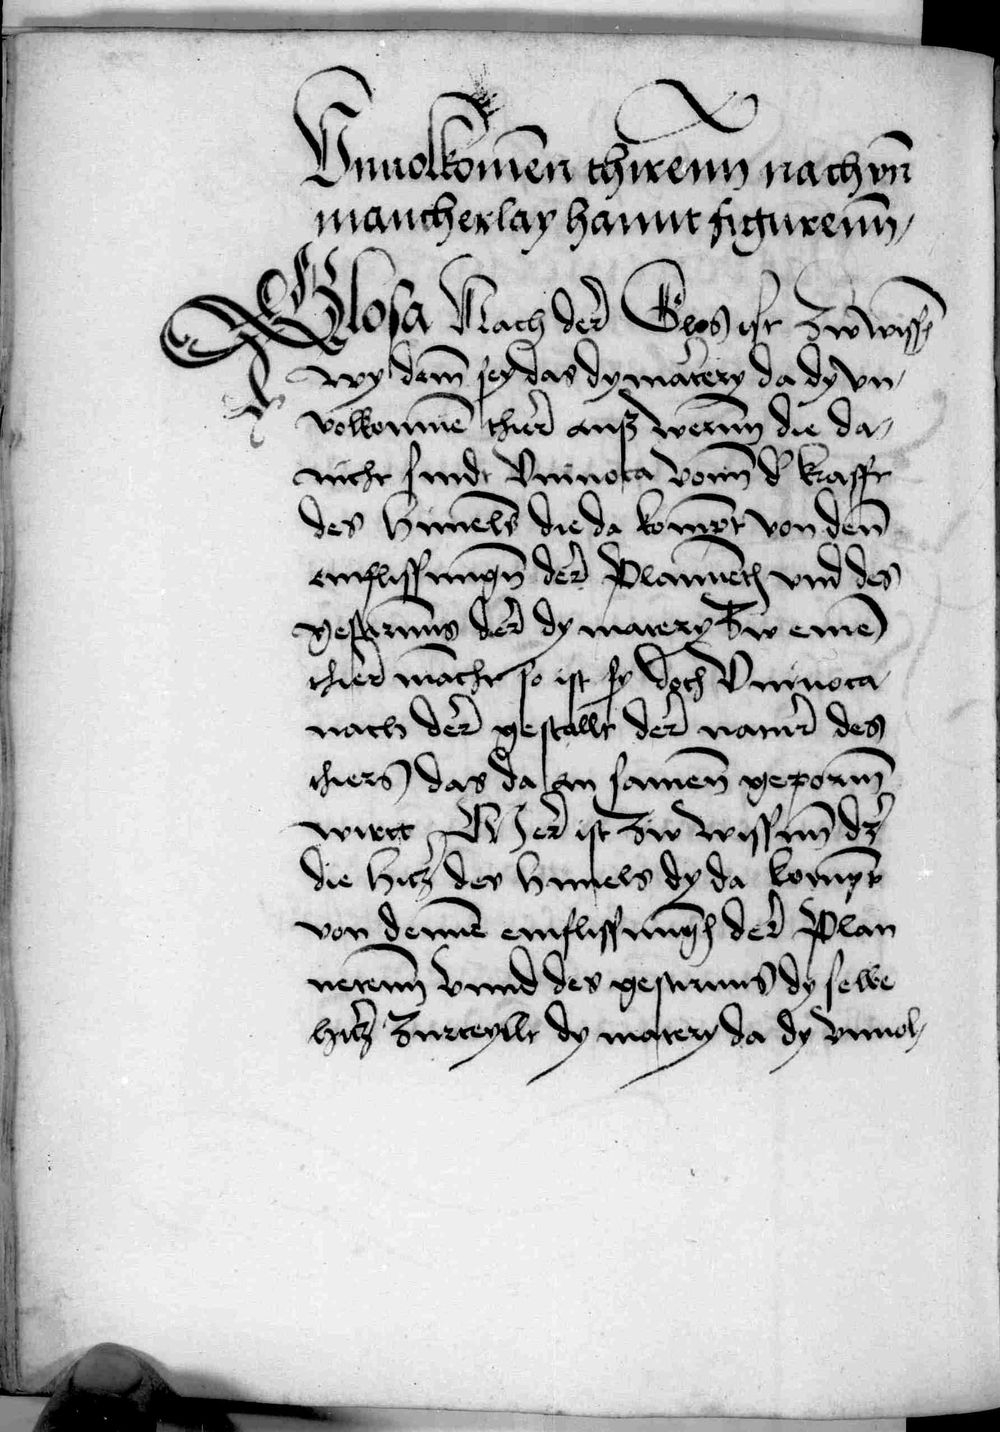 Vnuolkomen̄ thirenn nach vn̄
mancherlay hannt figurenn̄
Glosa Nach der Glos ist zw wissn̄
wy dem̄ sey das dy matery da dy vn
volkomme thier auß wernn die da
nicht sindt Vniuoca vonn d' krafft
des himels die da kompt von den̄
einflissungn̄ der Planneth vnd des
gestirnns der dy matery zw einē
thier macht so ist sy doch Vniuoca
nach der gestallt der natur des
thiers das da on samen geporn̄
wirtt Mer ist zw wissnn dz
die hitz des himels dy da kompt
von denne einflissungn̄ der Plan
netenn vnnd des gestirnns dy selbe
hitz zurteyllt dy matery da dy vnuol